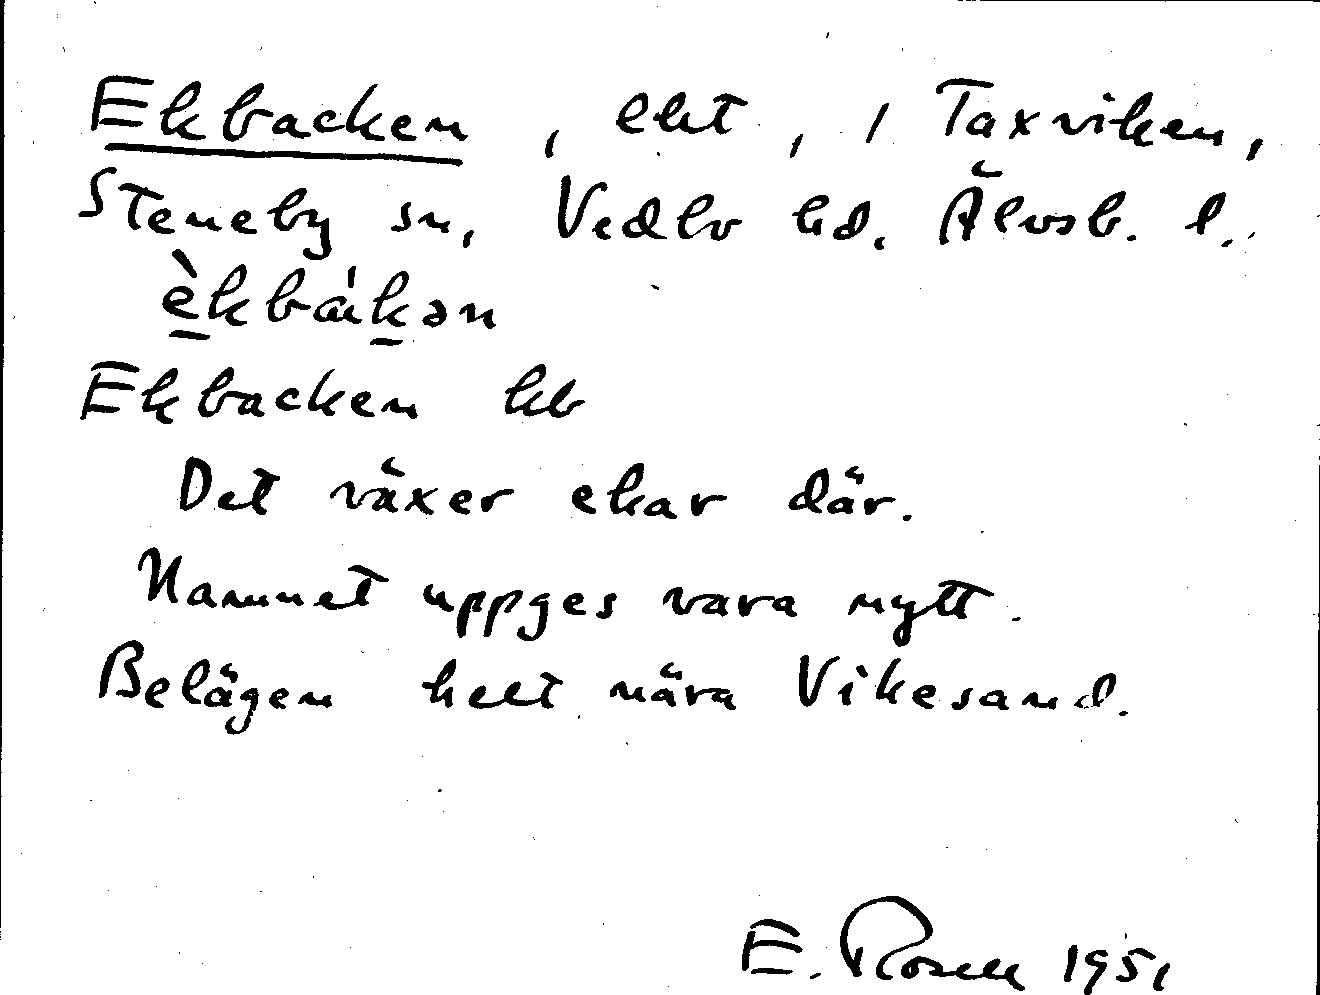 Ekbacken, lht, 1 Taxviken,
Steneby sn, Vedbo hd. Älvsb. l.
èkbákən
Ekbacken kb
Det växer ekar där.
Namnet uppges vara nytt.
Belägen helt nära Vikesand.
E. Rosell 1951